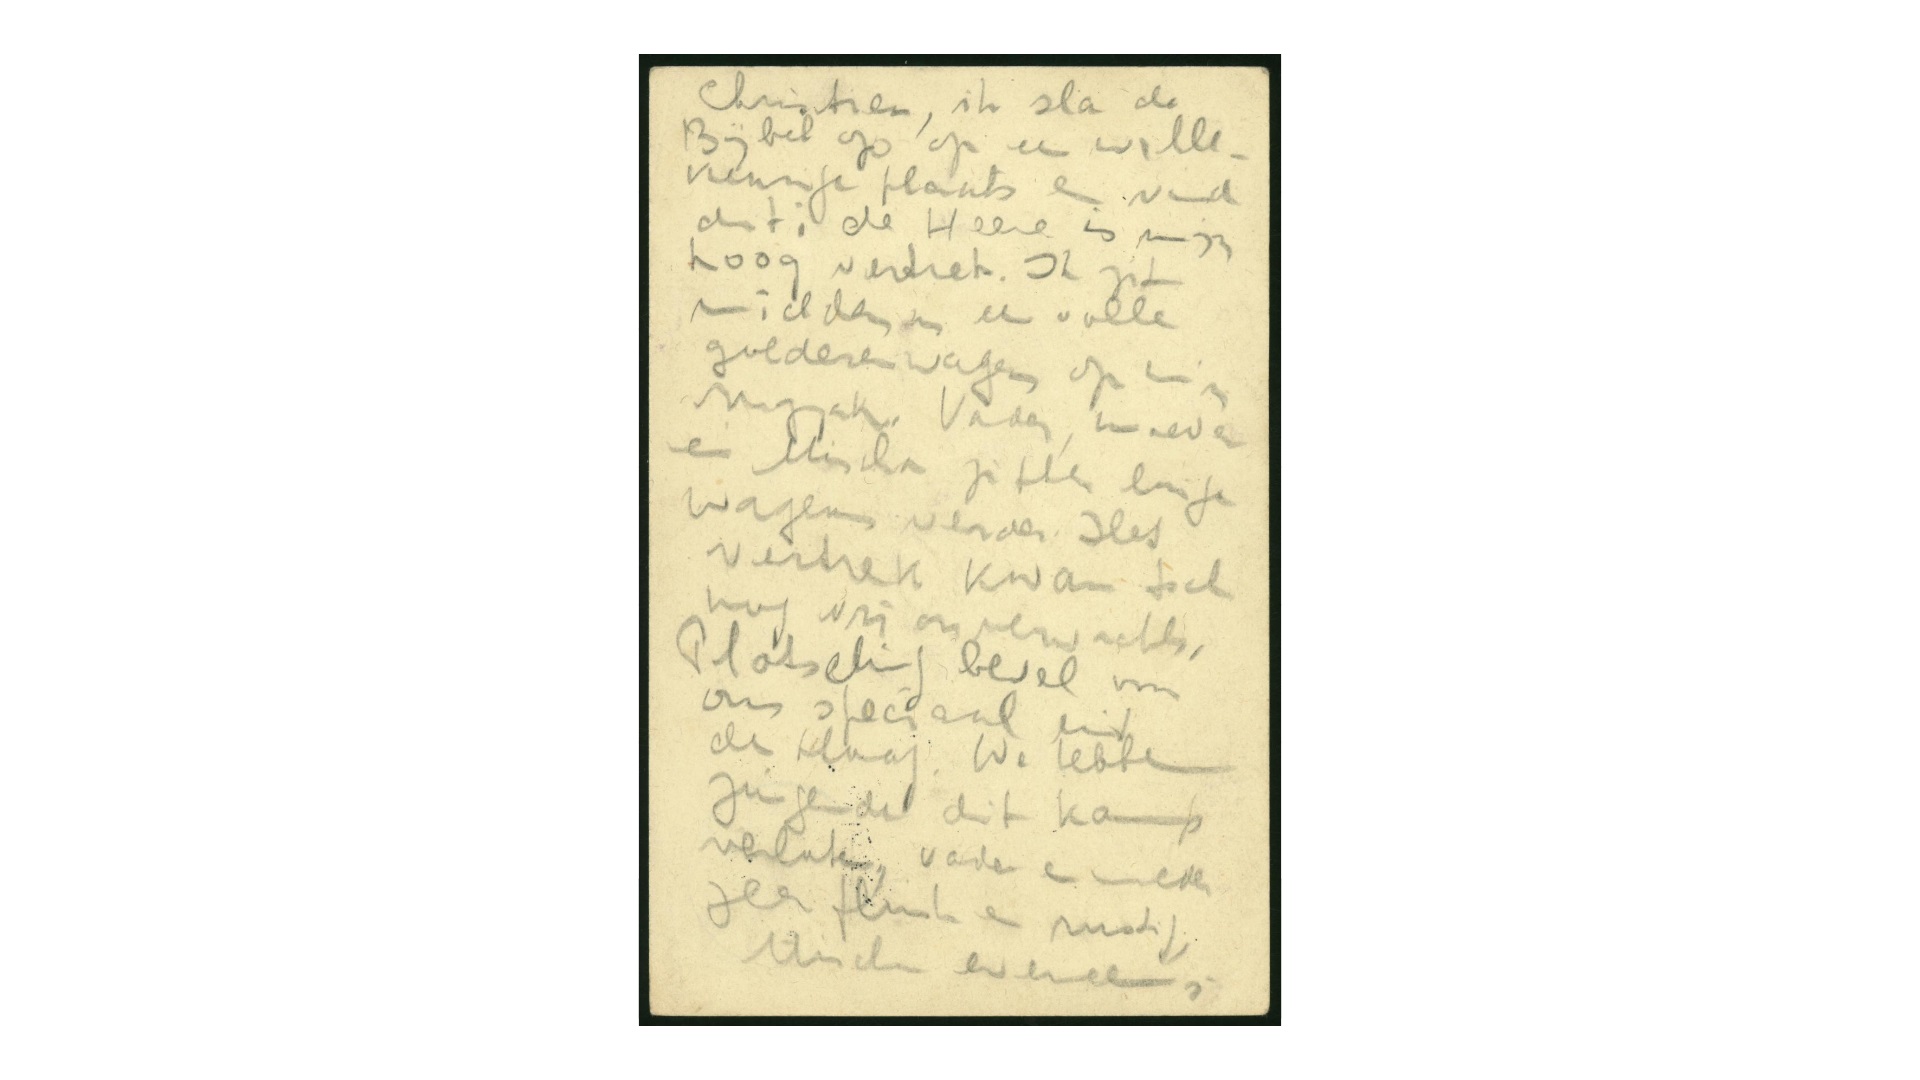 Christien, ik sla de
Bijbel op op een wille-
keurige plaats en vind
dit: de Heere is mijn
hoog vertrek. Ik zit
midden in een volle
goederenwagen op mijn
rugzak. Vader, moeder
en Mischa zitten enige
wagens verder. Het
vertrek kwam toch
nog vrij onverwachts.
Plotseling bevel van
ons speciaal uit
den Haag. We hebben
zingende dit kamp
verlaten, vader en moeder
zeer flink en rustig.
Mischa eveneens